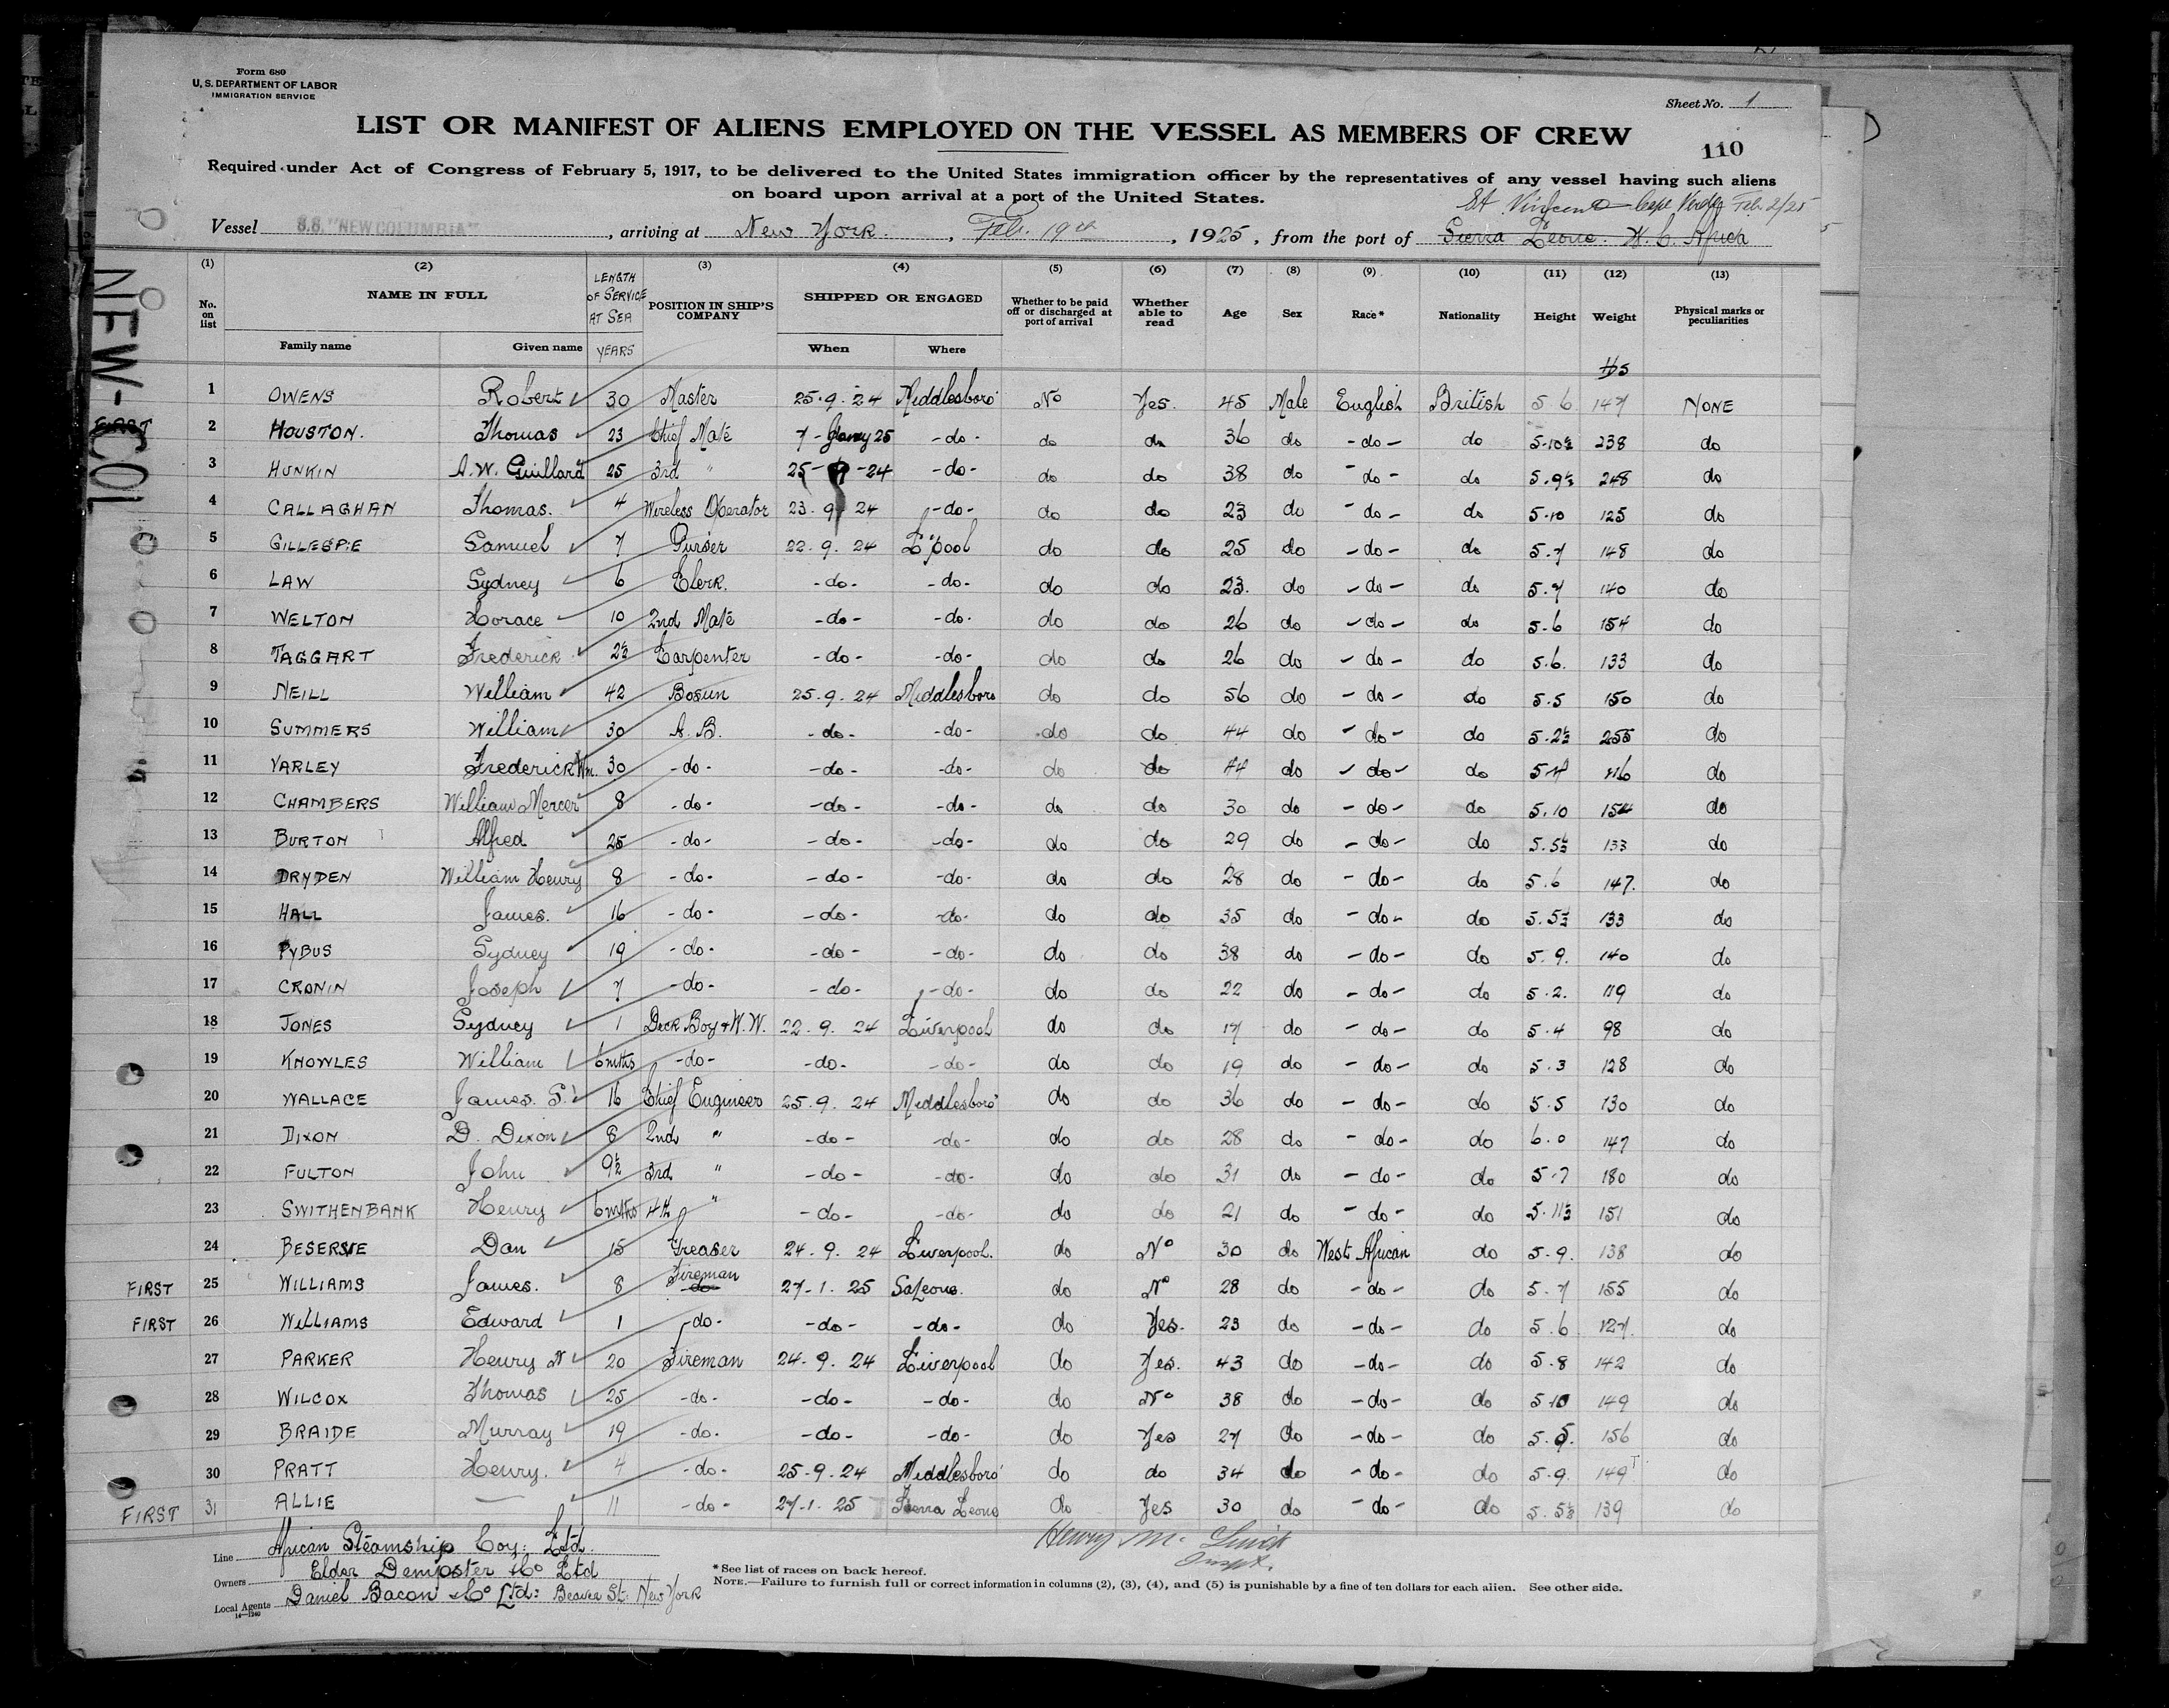 Form 680
U. S. DEPARTMENT OF LABOR
IMMIGRATION SERVICE
Sheet No. 1
LIST OR MANIFEST OF ALIENS EMPLOYED ON THE VESSEL AS MEMBERS OF CREW
110
Required under Act of Congress of February 5, 1917, to be delivered to the United States immigration officer by the representatives of any vessel having such aliens
on board upon arrival at a port of the United States.
St Vincent Cape Verde Feb. 2/25
Vessel S.S. "NEW COLUMBIA", arriving at New York, Feb. 19th, 1925, from the port of Sierra Leone. W. C. Africa
NEW-COL
(1) (2) (3) (4) (5) (6) (7) (8) (9) (10) (11) (12) (13)
No. on list NAME IN FULL LENGTH OF SERVICE AT SEA POSITION IN SHIP'S COMPANY SHIPPED OR ENGAGED Whether to be paid off or discharged at port of arrival Whether able to read Age Sex Race* Nationality Height Weight Physical marks or peculiarities
Family name Given name YEARS When Where
1 OWENS Robert 30 Master 25.9.24 Middlesboro' No Yes. 45 Male English British 5.6 147 NONE
FIRST 2 HOUSTON. Thomas 23 Chief Mate 7-Jany 25 -do- do do 36 do -do- do 5.10½ 238 do
3 HUNKIN A.W. Guillard 25 3rd " 25-9-24 -do- do do 38 do -do- do 5.9½ 248 do
4 CALLAGHAN Thomas. 4 Wireless Operator 23.9 24 -do- do do 23 do -do- do 5.10 125 do
5 GILLESPIE Samuel 7 Purser 22.9.24 L'pool do do 25 do -do- do 5.7 148 do
6 LAW Sydney 6 Clerk. -do- -do- do do 23. do -do- do 5.7 140 do
7 WELTON Horace 10 2nd Mate -do- -do- do do 26 do -do- do 5.6 154 do
8 TAGGART Frederick 2½ Carpenter -do- -do- do do 26 do -do- do 5.6. 133 do
9 NEILL William 42 Bosun 25.9.24 Middlesboro do do 56 do -do- do 5.5 150 do
10 SUMMERS William 30 A.B. -do- -do- do do 44 do -do- do 5.2½ 255 do
11 VARLEY Frederick Wm. 30 -do- -do- -do- do do 44 do -do- do do
12 CHAMBERS William Mercer 8 -do- -do- -do- do do 30 do -do- do 5.10 154 do
13 BURTON Alfred 25 -do- -do- -do- do do 29 do -do- do 5.5½ 133 do
14 DRYDEN William Henry 8 -do- -do- -do- do do 28 do -do- do 5.6 147. do
15 HALL James. 16 -do- -do- -do- do do 35 do -do- do 5.5½ 133 do
16 PYBUS Sydney 19 -do- -do- -do- do do 38 do -do- do 5.9. 140 do
17 CRONIN Joseph 7 -do- -do- -do- do do 22 do -do- do 5.2. 119 do
18 JONES Sydney 1 Deck Boy & W.W. 22.9.24 Liverpool do do 17 do -do- do 5.4 98 do
19 KNOWLES William 6mths -do- -do- -do- do do 19 do -do- do 5.3 128 do
20 WALLACE James. 16 Chief Engineer 25.9.24 Middlesboro' do do 36 do -do- do 5.5 130 do
21 DIXON D. Dixon 8 2nd " -do- -do- do do 28 do -do- do 6.0 147 do
22 FULTON John 9½ 3rd " -do- -do- do do 31 do -do- do 5.7 180 do
23 SWITHENBANK Henry 6mths 4th " -do- -do- do do 21 do -do- do 5.11½ 151 do
24 Dan 15 Greaser 24.9.24 Liverpool. do No 30 do West African do 5.9. 138 do
FIRST 25 WILLIAMS James. 8 Fireman do 27.1.25 SaLeone. do No 28 do -do- do 5.7 155 do
FIRST 26 WILLIAMS Edward 1 -do- -do- -do- do Yes. 23 do -do- do 5.6 127. do
27 PARKER Henry N 20 Fireman 24.9.24 Liverpool do Yes. 43 do -do- do 5.8 142 do
28 WILCOX Thomas 25 -do- -do- -do- do No 38 do -do- do 5.10 149 do
29 BRAIDE Murray 19 -do- -do- -do- do Yes 27 do -do- do 156 do
30 PRATT Henry. 4 -do- 25.9.24 Middlesboro' do do 34 do -do- do 5.9. 149 do
FIRST 31 ALLIE — 11 -do- 27.1.25 Sierra Leone do Yes 30 do -do- do 5.5½ 139 do
Line African Steamship Coy: Ltd.
Henry M.
Owners Elder Dempster & Co Ltd
*See list of races on back hereof.
NOTE.—Failure to furnish full or correct information in columns (2), (3), (4), and (5) is punishable by a fine of ten dollars for each alien. See other side.
Local Agents Daniel Bacon & Co Ltd: Beaver St: New York
14—1240